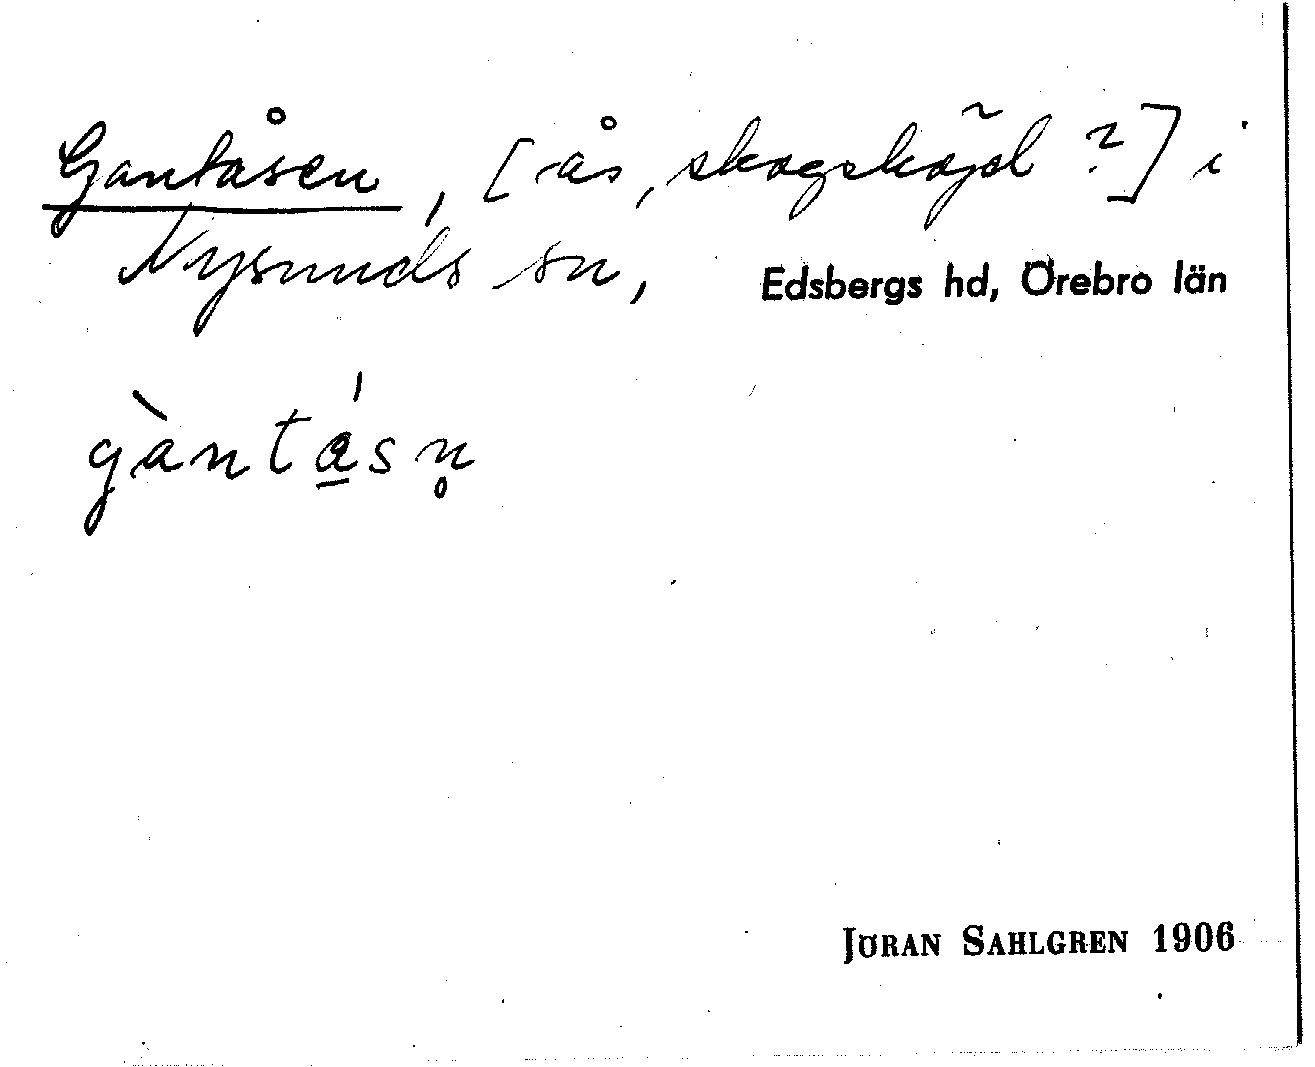 Gantåsen, [ås, skogshöjd ?] i
Nysunds sn, Edsbergs hd, Örebro län
gàntá̱sn̥
JÖRAN SAHLGREN 1906